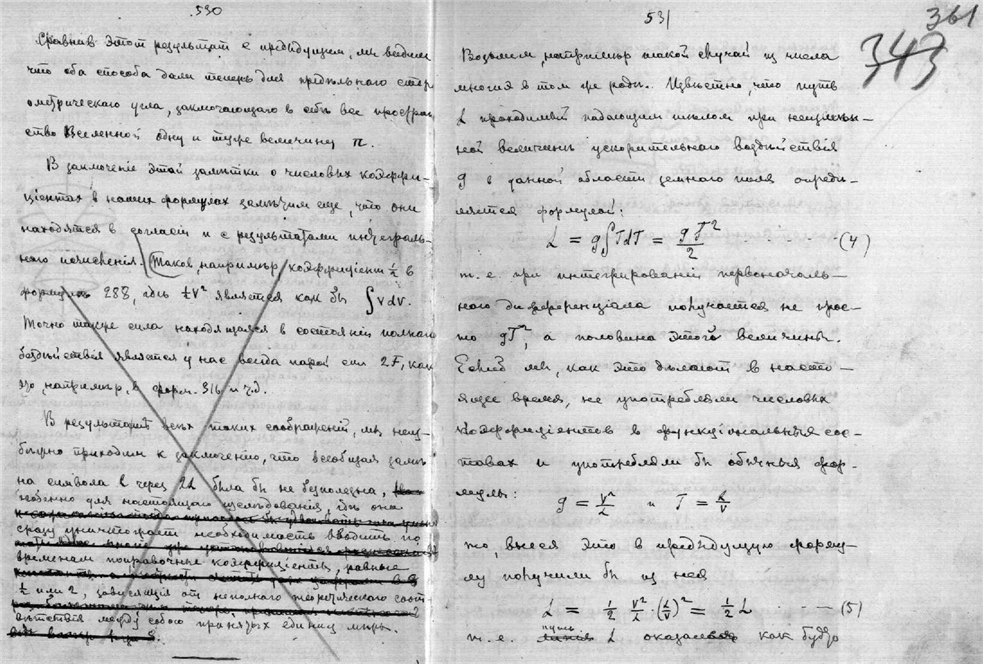 530
Сравнивъ этотъ результатъ съ предыдущимъ, мы видимъ
что оба способа дали теперь для предѣльнаго стере
ометрическаго угла, заключающаго въ себѣ все простран
ство Вселенной одну и туже величину π.
Въ заключеніе этой замѣтки о числовыхъ коэффи-
ціентахъ въ нашихъ формулахъ замѣтимъ еще, что они
находятся въ согласіи и съ результатами интеграль-
наго исчисленія. Таковъ, напримѣръ, коэффиціентъ ½ въ
формулѣ 288, гдѣ ½ V² является какъ бы ∫ V dV.
Точно также сила находящаяся въ состояніи полнаго
бездѣйствія является у насъ всегда парой силъ 2F, какъ
это напримѣръ, въ форм. 316 и т.д.
Въ результатѣ всѣхъ такихъ соображеній, мы неиз-
бѣжно приходимъ къ заключенію, что всеобщая замѣ
на символа L черезъ 2L была бы не безполезна,
гдѣ она
сразу уничтожаетъ необходимость вводить по
временамъ поправочные коэффиціенты, равные
½ или 2, зависящія отъ неполнаго теоретическаго соот-
вѣтствія между собою принятыхъ единицъ мѣры.
531
361
343
Возьмемъ, напримѣръ такой случай изъ числа
многихъ въ томъ же родѣ. Извѣстно, что путь
L проходимый падающимъ тѣломъ при неизмѣн-
ной величинѣ ускорительнаго воздѣйствія
g въ данной области земного поля опредѣ-
ляется формулой:
L = g∫TdT = gT²/2 (4)
т. е. при интегрированіи первоначаль-
наго дифференціала получается не прос-
то gT², а половина этой величины.
Еслибъ мы, какъ это дѣлаютъ въ насто-
ящее время, не употребляли числовыхъ
коэффиціентовъ въ функціональныхъ сос-
тавахъ и употребляли бы обычныя фор-
мулы:
g = V²/L и T = L/V
то, внеся это въ предыдущую форму-
лу получили бы изъ нея
L = ½ V²/L · (L/V)² = ½ L (5)
т. е. путь L оказался какъ будто